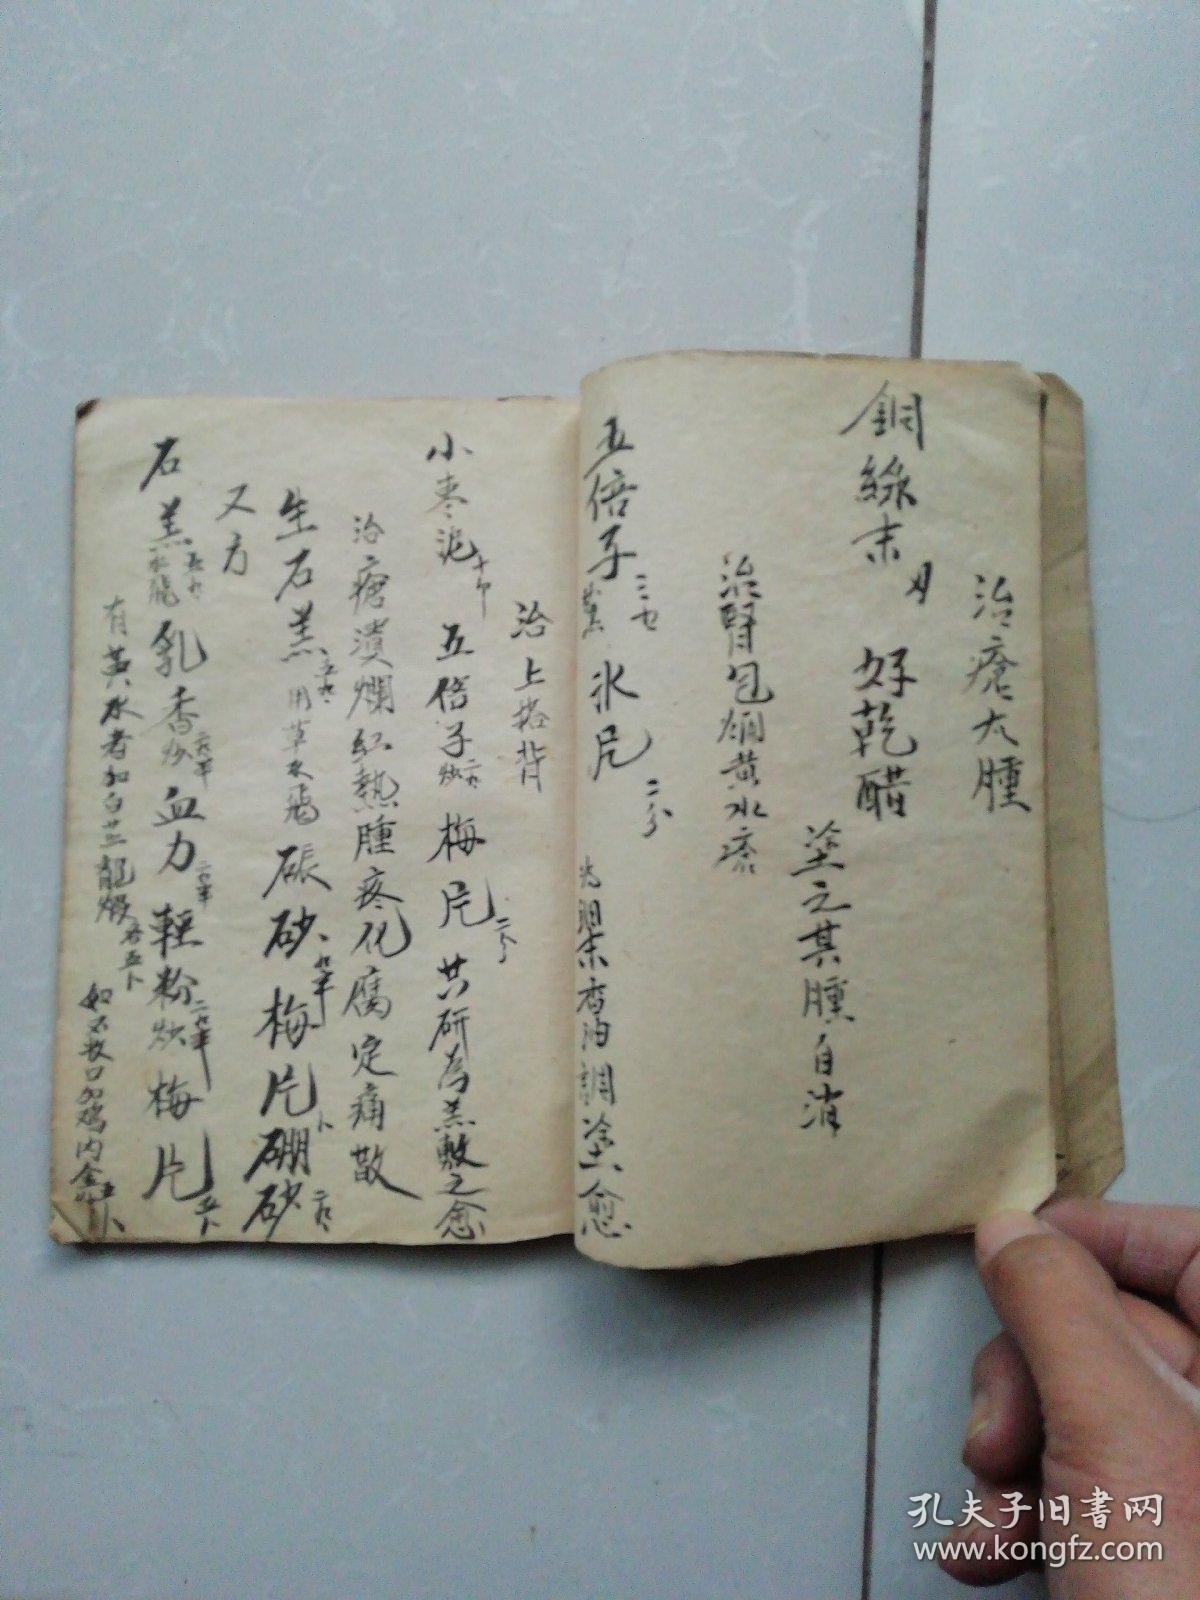 治瘡大腫
銅絲末 好乾醋
塗之其腫自消
治腎包爛黃水瘡
五倍子 氷片 二分
為細末香油調塗愈
治上搭背
小棗泥 五倍子 梅片 共研為羔敷之愈
治瘡潰爛紅熱腫疼化腐定痛散
生石羔 用草水飛 硃砂 梅片 硼砂
又方
石羔 水飛 乳香 血力 輕粉 梅片
有黃水者加白芷龍煅
如不收口加鸡内金
孔夫子旧书网
www.kongfz.com